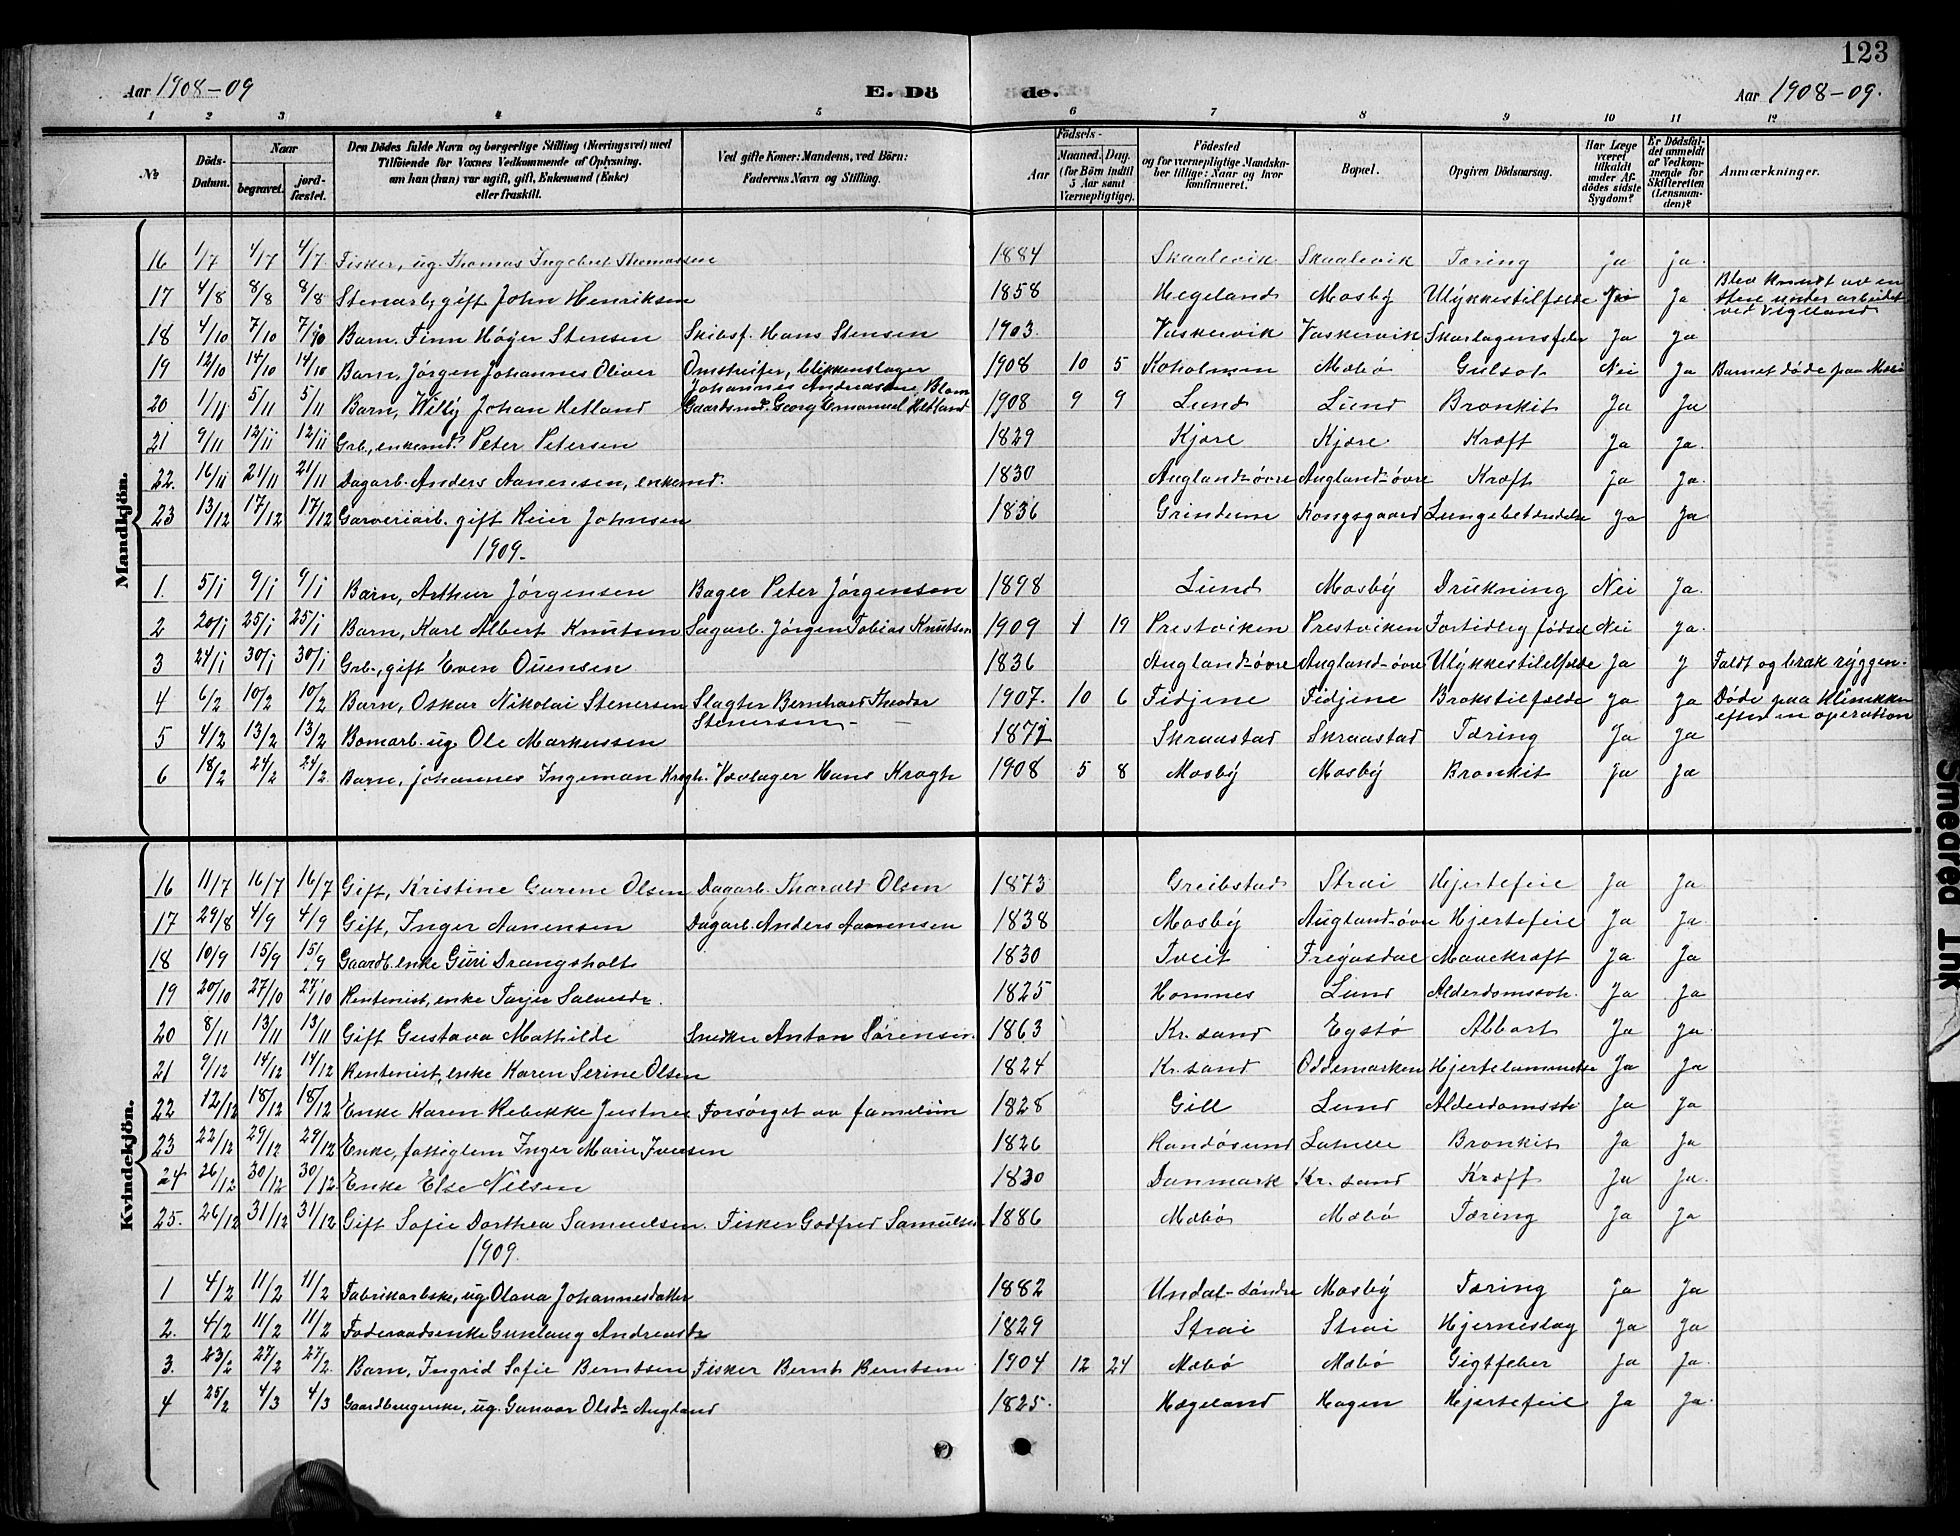 123
Aar 1908-09 E. Dö de. Aar 1908-09.
1 2 3 4 5 6 7 8 9 10 11 12
№ Döds-Datum. Naar begravet. jord-fæstet. Den Dödes fulde Navn og borgerlige Stilling (Næringsvei) med Tilföiende for Voxnes Vedkommende af Oplysning, om han (hun) var ugift, gift, Enkemand (Enke) eller fraskilt. Ved gifte Koner: Mandens, ved Börn: Faderens Navn og Stilling. Aar Födsels- Maaned. Dag. (for Börn indtil 5 Aar samt Værnepligtige). Födested og for værnepligtige Mandskaber tillige: Naar og hvor konfirmeret. Bopæl. Opgiven Dödsaarsag. Har Læge været tilkaldt under Afdödes sidste Sygdom? Er Dödsfaldet anmeldt af Vedkommende for Skifteretten (Lensmanden)? Anmærkninger.
Mandkjön.
16 1/7 4/7 4/7 Fisker, ug. Thomas Ingebret Thomassen 1884 Skaalevik Skaalevik Tæring ja ja.
17 4/8 8/8 8/8 Stenarb, gift John Henriksen 1858 Hegeland Mosby Ulykkestilfælde Nei Ja Blev knust av en sten under arbeidet ved Vigeland
18 4/10 7/10 7/10 Barn. Finn Höyer Stensen Skibsf. Hans Stensen 1903. Vaskervik Vaskervik Skarlagensfeber Ja Ja
19 12/10 14/10 14/10 Barn, Jörgen Johannes Oliver Omstreifer, blikkenslager Johannes Andreassen Blom 1908 10 5 Koholmen Mæbö Gulsot Nei Ja Barnet döde paa Mæbö
20 1/11 5/11 5/11 Barn, Willy Johan Hetland Gaardsmd. Georg Emanuel Hetland 1908 9 9 Lund Lund Bronkit Ja Ja
21 9/11 12/11 12/11 Grb., enkemd. Peter Petersen 1829 Kjære Kjære Kræft Ja Ja.
22. 16/11 21/11 21/11 Dagarb. Anders Aanensen, enkemd. 1830 Augland-övre Augland-övre Kræft Ja Ja.
23 13/12 17/12 17/12 Garveriarb. gift Reier Johnsen 1836 Grindum Kongsgaard Lungebetændelse Ja Ja.
1909.
1. 5/1 9/1 9/1 Barn, Arthur Jörgensen Bager Peter Jörgensen 1898 Lund Mosby Drukning Nei Ja.
2 20/1 25/1 25/1 Barn, Karl Albert Knutsen Sagarb. Jörgen Tobias Knutsen 1909 1 19 Prestviken Prestviken Fortidlig födsel Nei ja.
3 24/1 30/1 30/1 Grb., gift Even Ouensen 1836 Augland-övre Augland-övre Ulykkestilfelde Ja J Faldt og brak ryggen.
4 6/2 10/2 10/2 Barn, Oskar Nikolai Stenersen Slagter Bernhard Theodor Stenersen 1907. 10 6 Fidjene Fidjene Brokstilfælde Ja Ja Döde paa Klinikken efter en operation
5 4/2 13/2 13/2 Bomarb. ug. Ole Markussen 1871 Skraastad Skraastad Tæring Ja Ja
6 18/2 24/2 24/2 Barn, Johannes Ingeman Krogh. Hans Krogh 1908 5 8 Mosby Mosby Bronkit Ja Ja
Kvindekjön.
16 11/7 16/7 16/7 Gift, Kristine Gurene Olsen Dagarb. Tharald Olsen 1873 Greibstad Strai Hjertefeil Ja Ja.
17 29/8 4/9 4/9 Gift, Inger Aanensen Dagarb. Anders Aanensen 1838 Mosby Augland-övre Hjertefeil Ja Ja.
18 10/9 15/9 15/9 Gaardb. enke Guri Drangsholt 1830 Tveit Frigösdal Mavekræft Ja Ja
19 20/10 27/10 27/10 Rentenist, enke Tarjer Salvesdr. 1825 Homnes Lund Alderdomssv. Ja Ja
20 8/11 13/11 13/11 Gift Gustava Mathilde Snedker Anton Sörensen. 1863 Kr.sand Egstö Abbort Ja Ja
21 9/12 14/12 14/12 Rentenist, enke Karen Serine Olsen 1824 Kr.sand Oddemarken Hjertelammelse Ja Ja
22 12/12 18/12 18/12 Enke Karen Rebekke Justnes Forsörget av familien 1828 Gill Lund Alderdomssv. Ja Ja
23 22/12 29/12 29/12 Enke, fattiglem Inger Marie Iversen 1826 Randösund Bronkit Ja Ja
24 26/12 30/12 30/12 Enke Else Nilsen 1830 Danmark Kr. sand Kræft Ja Ja.
25. 26/12 31/12 31/12 Gift Sofie Dorthea Samuelsen. Fisker Godfred Samuelsen 1886 Mæbö Mæbö Tæring Ja Ja
1909.
1 4/2 11/2 11/2 Fabrikarbske, ug. Olava Johannesdatter 1882 Undal-söndre Mosby Tæring ja Ja
2. 4/2 11/2 11/2 Föderaadsenke Gunlaug Andreasdr 1829 Strai Strai Hjerneslag Ja Ja
3. 23/2 27/2 27/2 Barn, Ingrid Sofie Berntsen Fisker Bernt Berntsen 1904 12 24 Mæbö Mæbö Gigtfeber Ja Ja.
4 25/2 4/3 4/3 Gaardbrugerske, ug. Gunvor Olsdr Augland 1825. Hægeland Hagen Hjertefeil Ja Ja.
Smeared Ink